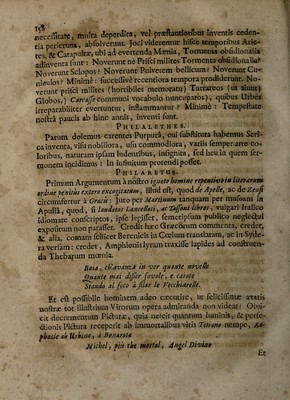 158
necessitate, multa deperdita, vel præstantioribus inventis ceden-
tia perierunt, absolverunt. Joci viderentur hisce temporibus Arie-
tes, & Catapultæ, ubi ad evertenda Mænia, Tormenta obsidionalia
adinventa sunt: Noverunt nè Prisci milites Tormenta obsidionalia?
Noverunt Sclopos? Noverunt Pulverem bellicum? Noverunt Cu-
niculos? Minimè: successivè recentiora tempora prodiderunt. No-
verunt prisci milites (horribiles memoratu) Tartareos (ut aiunt)
Globos,) Carcasse communi vocabulo nuncupatos), quibus Urbes
irreparabiliter evertuntur, inflammantur? Minimè: Tempestate
nostrà paucis ab hinc annis, inventi sunt.
PHILALETHES.
Parum dolemus carentes Purpurâ, cui substituta habemus Seri-
ca inventa, visu nobiliora, usu commodiora, variis semper arte co-
loribus, naturam ipsam ludentibus, insignita, sed heu in quem ser-
monem incidimus: In infinitum protendi posset.
PHILARETUS.
Primum Argumentum à nostro ignoto homine repentino in literarum
ordine penitùs extero excogitatum, illud est, quod de Apelle, ac de Zeusi
circumfertur à Græcis: Juro per Martinum tanquam per musam in
Apuliâ, quod, si laudatos Lancellati, ac Tassoni libros, vulgari Italico
idiomate conscriptos, ipse legisset, semetipsum publico neglectui
expositum non parasset. Credit hæc Græcorum commenta, credet,
& alia, comam scilicet Berenicis in Cœlum translatam, ac in Syde-
ra versam: credet, Amphionis lyram traxisse lapides ad construen-
da Thebarum mœnia.
Baia, ch'avanza in ver quante novelle
Quante mai disser favole, e carote
Stando al foco à filar le Vecchiarelle.
Et est possibile hominem adeo cæcutire, ut felicissimæ ætatis
nostræ tot illustrium Virorum opera admiranda non videat? Obji-
cit decrementum Picturæ, quia nescit quantum luminis, & perfe-
ctionis Pictura receperit ab immortalibus viris Tetiano nempe, Ra-
phaele ab Urbino, à Bonarota
Michel, più che mortal, Angel Divino
Et